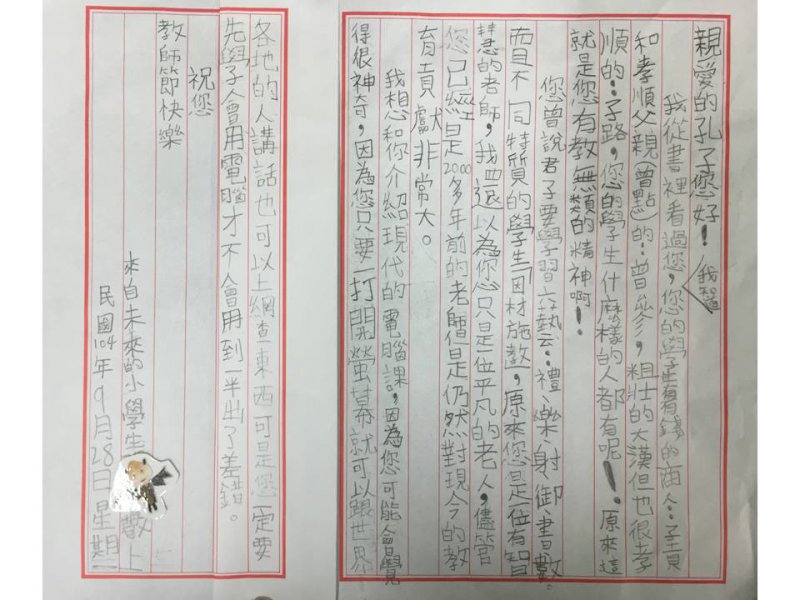 親愛的孔子您好！
我從書裡看過您，您的學生有有錢的商人：子貢
和孝順父親(曾點)的：曾參，粗壯的大漢但也很孝
順的：子路，您的學生什麼樣的人都有呢！。原來這
就是您有教無類的精神啊！。
您曾說君子要學習六執云：禮、樂、射、御、書、數。
而且不同特質的學生因材施教，原來您是一位有智
慧的老師，我還以為您只是一位平凡的老人，儘管
您已經是2000多年前的老師但是仍然對現今的教
育貢獻非常大。
我想和你介紹現代的電腦課，因為您可能會覺
得很神奇，因為您只要一打開螢幕就可以跟世界
各地的人講話也可以上網查東西可是您一定要
先學會用電腦才不會用到一半出了差錯。
祝您
教師節快樂
來自未來的小學生 敬上
民國104年9月28日星期一